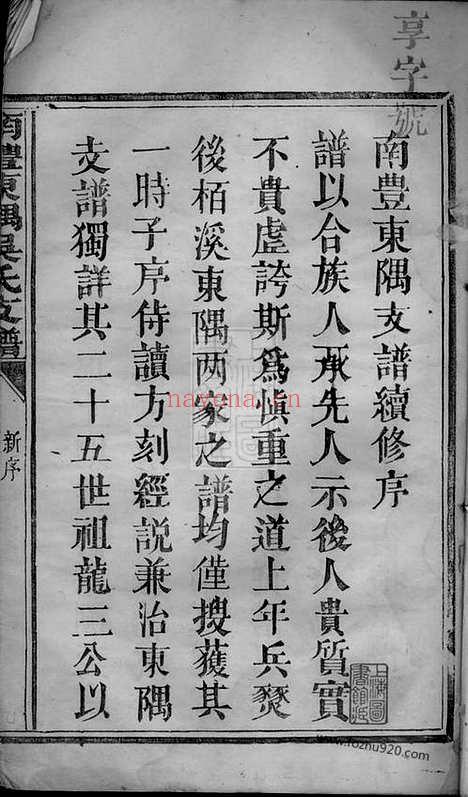 享字號
南豐東隅支譜續修序
譜以合族人承先人示後人貴質實
不貴虛誇斯為慎重之道上年兵燹
後栢溪東隅两家之譜均僅搜獲其
一時子序侍讀方刻經説兼治東隅
支譜獨詳其二十五世祖龍三公以
南豐東隅吳氏支譜
新序
nayona.cn
www.fozhu920.com